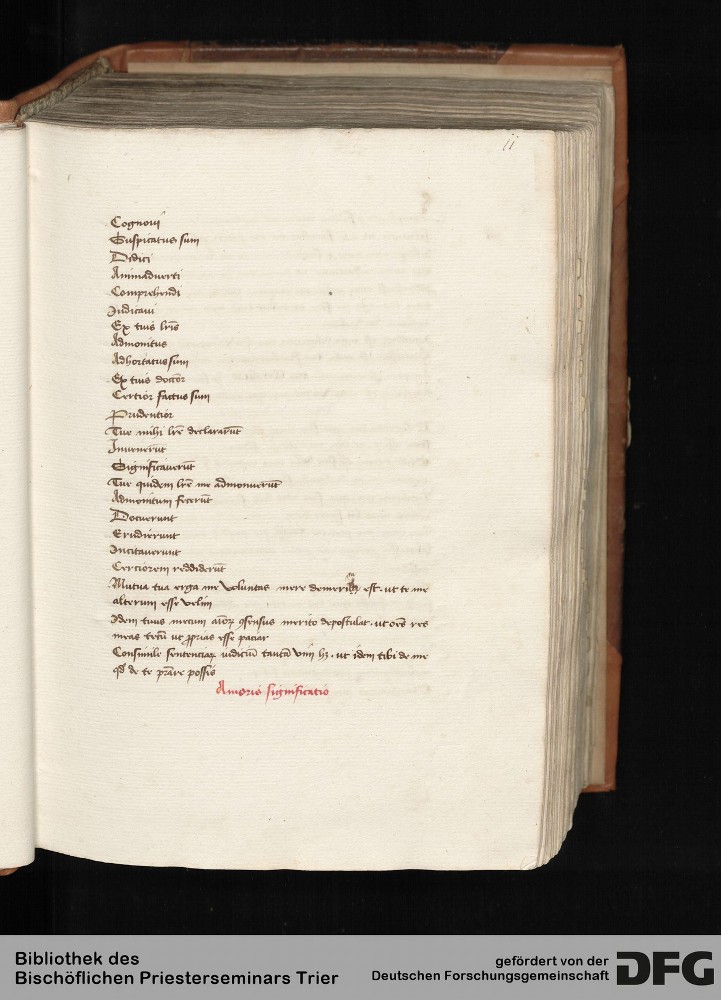 11
Cognoui
Suspicatus sum
Didici
Animaduerti
Comprehendi
Judicaui
Ex tuis lr̄is
Admonitus
Adhortatus sum
Ex tuis
Certior factus sum
Prudentior
Tue mihi lr̄e declararūt
Inuenerūt
Significauerūt
Tue quidem lr̄e me admonuerūt
Admonitum fecerūt
Docuerunt
Erudierunt
Incitauerunt
Cerciorem reddiderūt
Mutua tua erga me voluntas mere est. ut te me
alterum esse velim
Idem tuus mecum aīoꝝ ꝯsensus merito depostulat. ut oēs res
meas tecū ut ꝓprias esse paciar
Consimile sentenciaꝝ iudiciū tantā vim hꝫ. ut idem tibi de me
qd̄ de te possis
Amoris significatio
Bibliothek des
Bischöflichen Priesterseminars Trier
gefördert von der
Deutschen Forschungsgemeinschaft
DFG